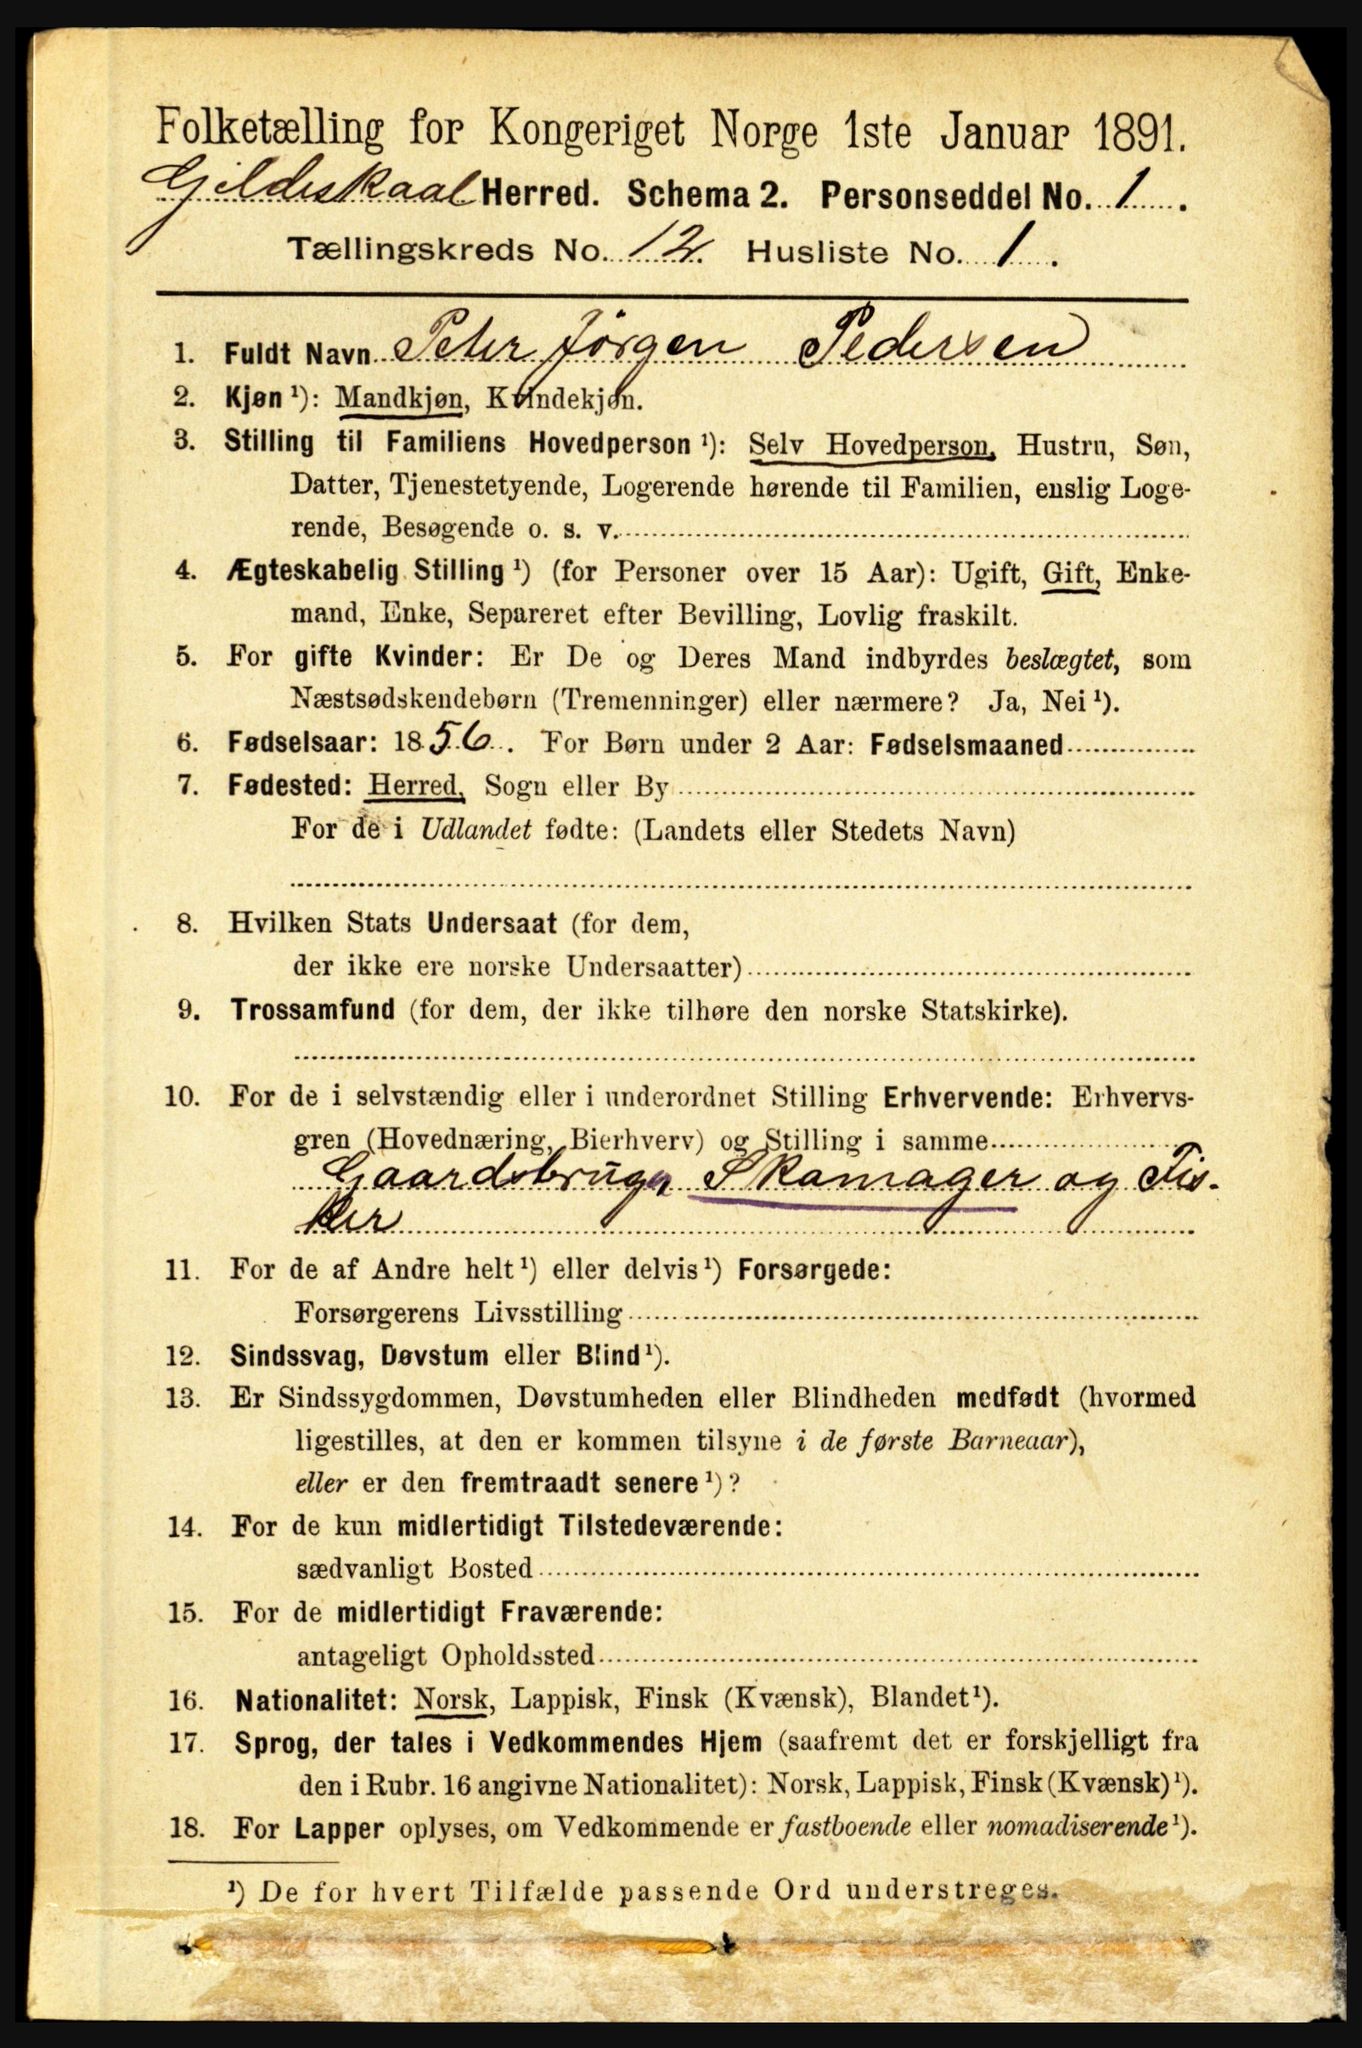 Folketælling for Kongeriget Norge 1ste Januar 1891.
Gildeskaal Herred. Schema 2. Personseddel No. 1.
Tællingskreds No. 12. Husliste No. 1.
1. Fuldt Navn Peter Jörgen Pedersen
2. Kjøn ¹): Mandkjøn, Kvindekjøn.
3. Stilling til Familiens Hovedperson ¹): Selv Hovedperson, Hustru, Søn,
Datter, Tjenestetyende, Logerende hørende til Familien, enslig Loge-
rende, Besøgende o. s. v.
4. Ægteskabelig Stilling ¹) (for Personer over 15 Aar): Ugift, Gift, Enke-
mand, Enke, Separeret efter Bevilling, Lovlig fraskilt.
5. For gifte Kvinder: Er De og Deres Mand indbyrdes beslægtet, som
Næstsødskendebørn (Tremenninger) eller nærmere? Ja, Nei ¹).
6. Fødselsaar: 1856. For Børn under 2 Aar: Fødselsmaaned
7. Fødested: Herred, Sogn eller By
For de i Udlandet fødte: (Landets eller Stedets Navn)
8. Hvilken Stats Undersaat (for dem,
der ikke ere norske Undersaatter)
9. Trossamfund (for dem, der ikke tilhøre den norske Statskirke).
10. For de i selvstændig eller i underordnet Stilling Erhvervende: Erhvervs-
gren (Hovednæring, Bierhverv) og Stilling i samme
Gaardsbruger Skomager og Fis-
ker
11. For de af Andre helt ¹) eller delvis ¹) Forsørgede:
Forsørgerens Livsstilling
12. Sindssvag, Døvstum eller Blind ¹).
13. Er Sindssygdommen, Døvstumheden eller Blindheden medfødt (hvormed
ligestilles, at den er kommen tilsyne i de første Barneaar),
eller er den fremtraadt senere ¹)?
14. For de kun midlertidigt Tilstedeværende:
sædvanligt Bosted
15. For de midlertidigt Fraværende:
antageligt Opholdssted
16. Nationalitet: Norsk, Lappisk, Finsk (Kvænsk), Blandet ¹).
17. Sprog, der tales i Vedkommendes Hjem (saafremt det er forskjelligt fra
den i Rubr. 16 angivne Nationalitet): Norsk, Lappisk, Finsk (Kvænsk) ¹).
18. For Lapper oplyses, om Vedkommende er fastboende eller nomadiserende ¹).
¹) De for hvert Tilfælde passende Ord understreges.